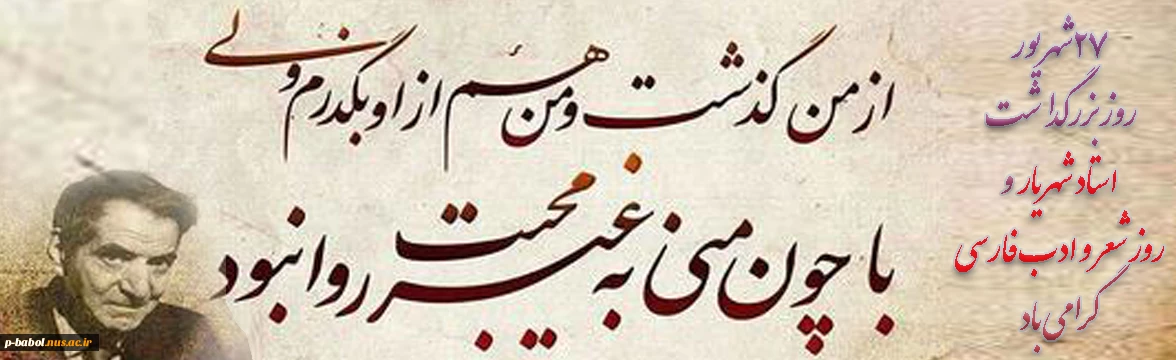 ۲۷ شهریور
روز بزرگداشت
استاد شهریار و
روز شعر و ادب فارسی
گرامی باد
از من گذشت و من هم از او بگذرم ولی
با چون منی به غیر محبت روا نبود
p-babol.nus.ac.ir